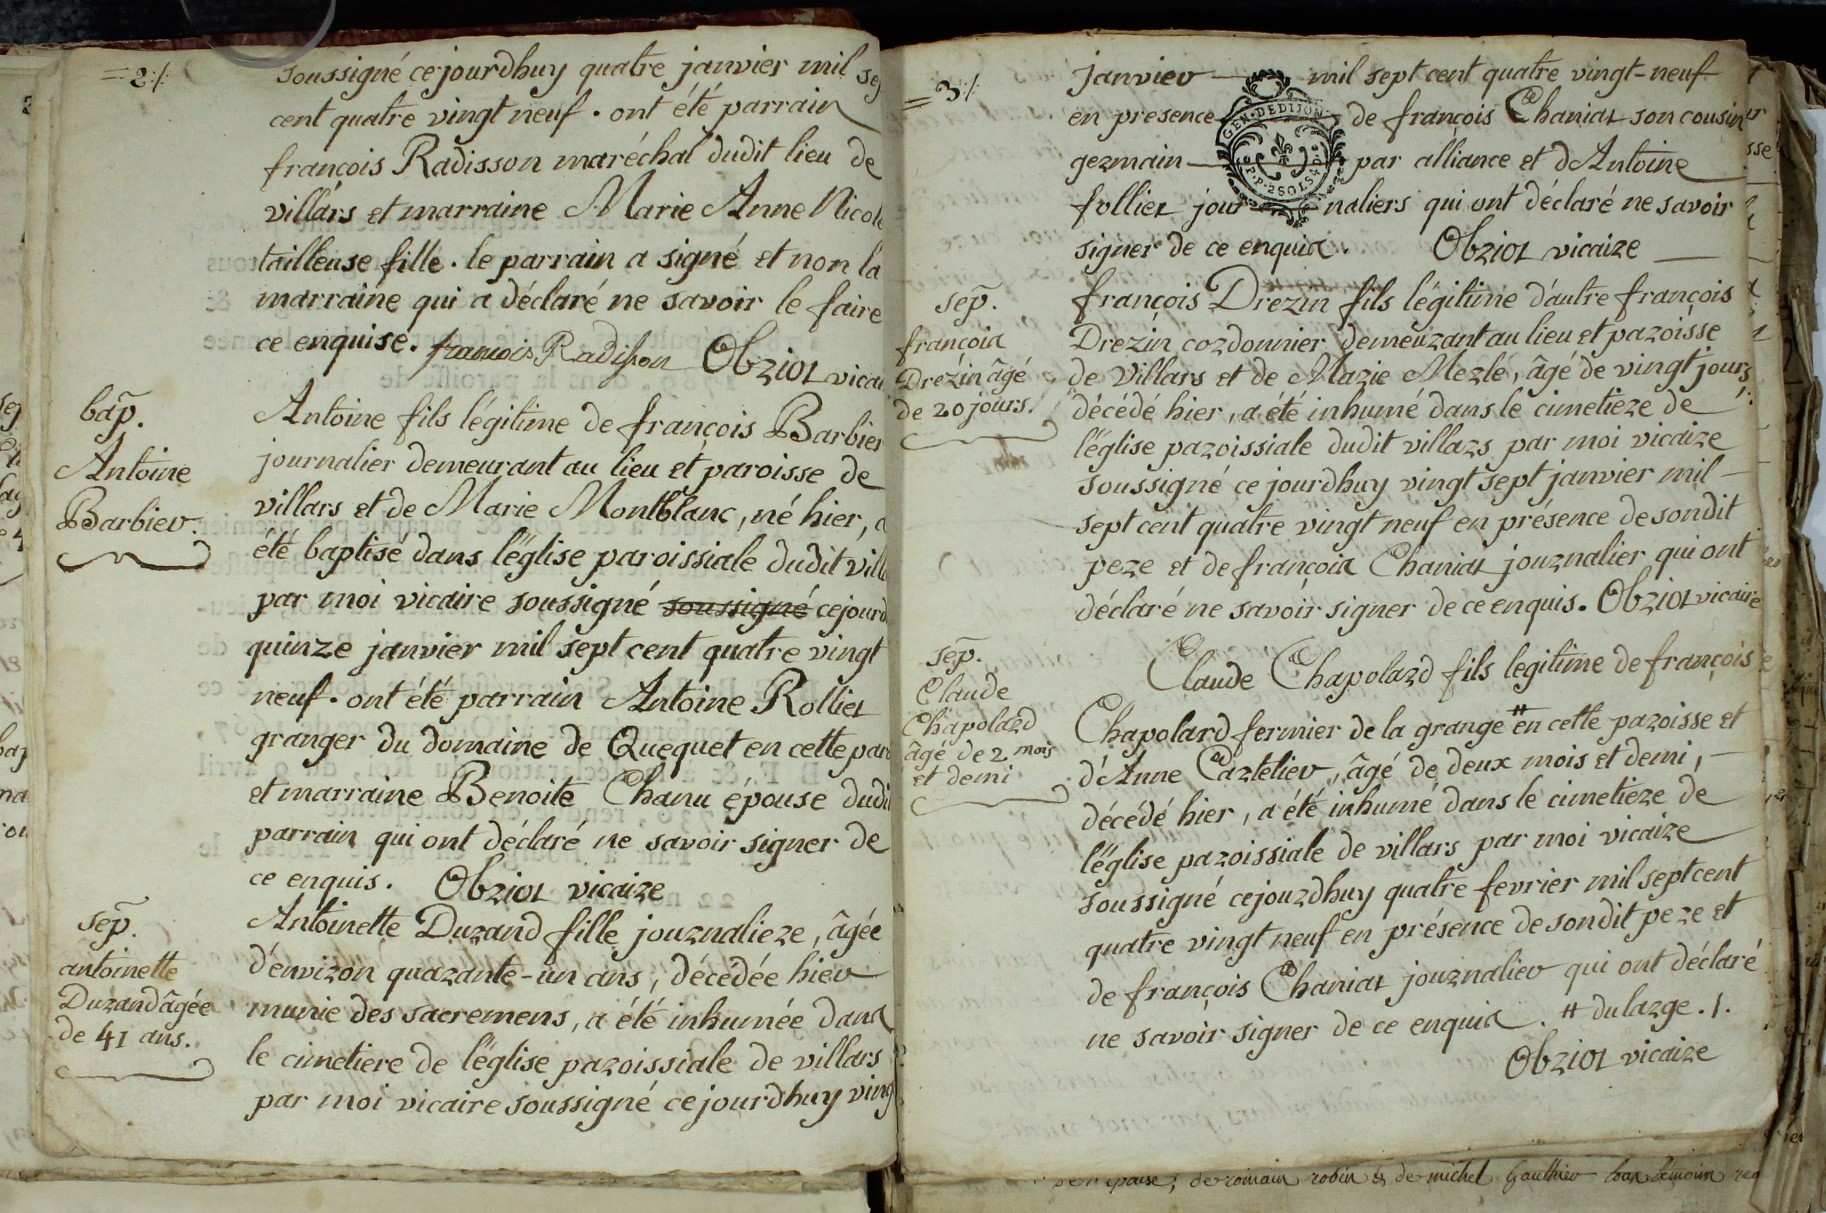 =2./.
soussigné cejourdhuy quatre janvier mil sep
cent quatre vingt neuf. ont été parrain
françois Radisson maréchal dudit lieu de
villars et marraine Marie Anne Nicole
tailleuse fille. le parrain a signé et non la
marraine qui a déclaré ne savoir le faire
ce enquise. francois Radisson Obriot vicai
bap.
Antoine
Barbier.
Antoine fils légitime de françois Barbier
journalier demeurant au lieu et paroisse de
villars et de Marie Montblanc, né hier, a
été baptisé dans l'église paroissiale dudit vill
par moi vicaire soussigné soussigné cejourd
quinze janvier mil sept cent quatre vingt
neuf. ont été parrain Antoine Rollier
granger du domaine de Quequet en cette par
et marraine Benoite Chanu épouse dudit
parrain qui ont déclaré ne savoir signer de
ce enquis. Obriot vicaire
sep.
antoinette
Durand âgée
de 41 ans.
Antoinette Durand fille journaliere, âgée
d'environ quarante-un ans, décédée hier
munie des sacremens, a été inhumée dans
le cimetiere de l'église paroissiale de villars
par moi vicaire soussigné cejourdhuy ving
=3./.
janvier mil sept cent quatre vingt-neuf
en presence de françois Chaniat son cousin
germain par alliance et d'Antoine
follier jour naliers qui ont déclaré ne savoir
signer de ce enquis. Obriot vicaire
GEN. DE DIJON
P.P. 2 SOLS 4 D
sep.
françois
Drezin âgé
de 20 jours.
françois Drezin fils légitime d'autre françois
Drezin cordonnier demeurant au lieu et paroisse
de Villars et de Marie Merlé, âgé de vingt jours,
décédé hier, a été inhumé dans le cimetiere de
l'église paroissiale dudit villars par moi vicaire
soussigné ce jourdhuy vingt sept janvier mil
sept cent quatre vingt neuf en présence de sondit
pere et de françois Chaniat journalier qui ont
déclaré ne savoir signer de ce enquis. Obriot vicaire
sep.
Claude
Chapolard
âgé de 2 mois
et demi
Claude Chapolard fils legitime de françois
Chapolard fermier de la grange # en cette paroisse et
d'Anne Cartelier, âgé de deux mois et demi,
décédé hier, a été inhumé dans le cimetiere de
l'église paroissiale de villars par moi vicaire
soussigné cejourdhuy quatre fevrier mil sept cent
quatre vingt neuf en présence de sondit pere et
de françois Chaniat journalier qui ont déclaré
ne savoir signer de ce enquis. # du large ./.
Obriot vicaire
de romain robin & de michel Gauthier